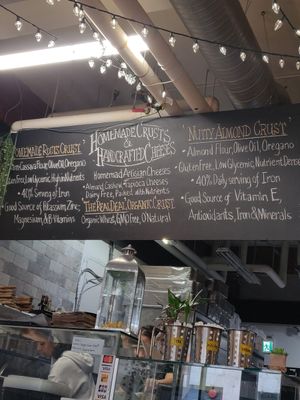 Homemade Roots Crust
Cassava Flour, Olive Oil, Oregano
Gluten Free, Low Glycemic, High in Nutrients
40% Serving of Iron
Good Source of Potassium, Zinc,
Magnesium, & B Vitamins
Homemade Crusts
& Handcrafted Cheeses
Homemade Artisan Cheeses
Almond, Cashew, Tapioca Cheeses
Dairy Free, Packed with Nutrients
The Real Deal Organic Crust
Organic Wheat, GMO Free, O Natural
Nutty Almond Crust
Almond Flour, Olive Oil, Oregano
Gluten Free, Low Glycemic, Nutrient Dense
40% Daily serving of Iron
Good Source of Vitamin E,
Antioxidants, Iron & Minerals
VISA